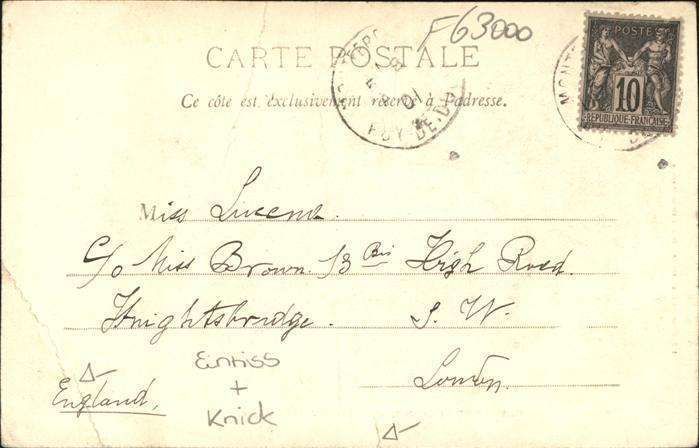 F63000
CARTE POSTALE
Ce côté est exclusivement réservé à l'adresse.
POSTE
10
RÉPUBLIQUE FRANÇAISE
MONT
PUY-DE-D
01
Miss Lucena.
C/o Miss Brown. 13 Bis High Road.
Knightsbridge. S. W.
London.
England.
+
Knick